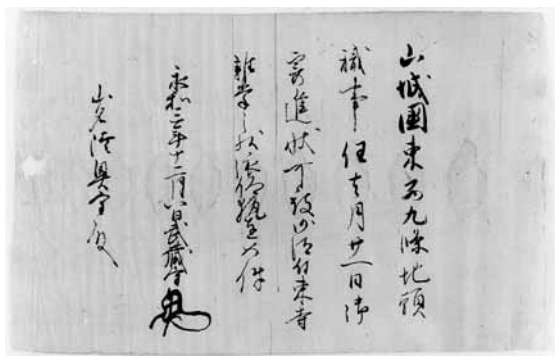 山城國東西九條地頭
職事任去月廿一日御
寄進状可被沙汰付東寺
雜掌之状依仰執達如件
永和三年十二月八日武藏守
山名陸奥守殿